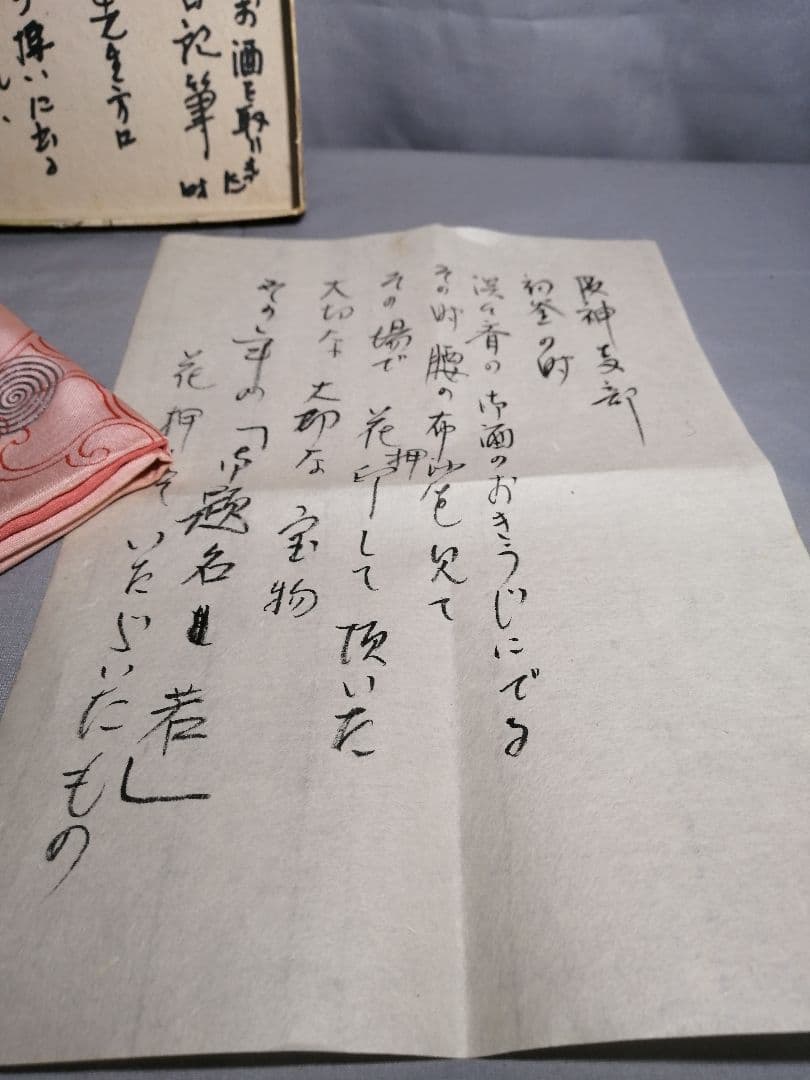 阪神支部
初釜の時
渓香の御酒のおきうじにでる
その時腰の布沙を見て
その場で花押印して頂いた
大切な大切な宝物
その年の「御題名 若」
花押していただいたもの
お酒を取りに
日記筆 時
先生方口
に出る